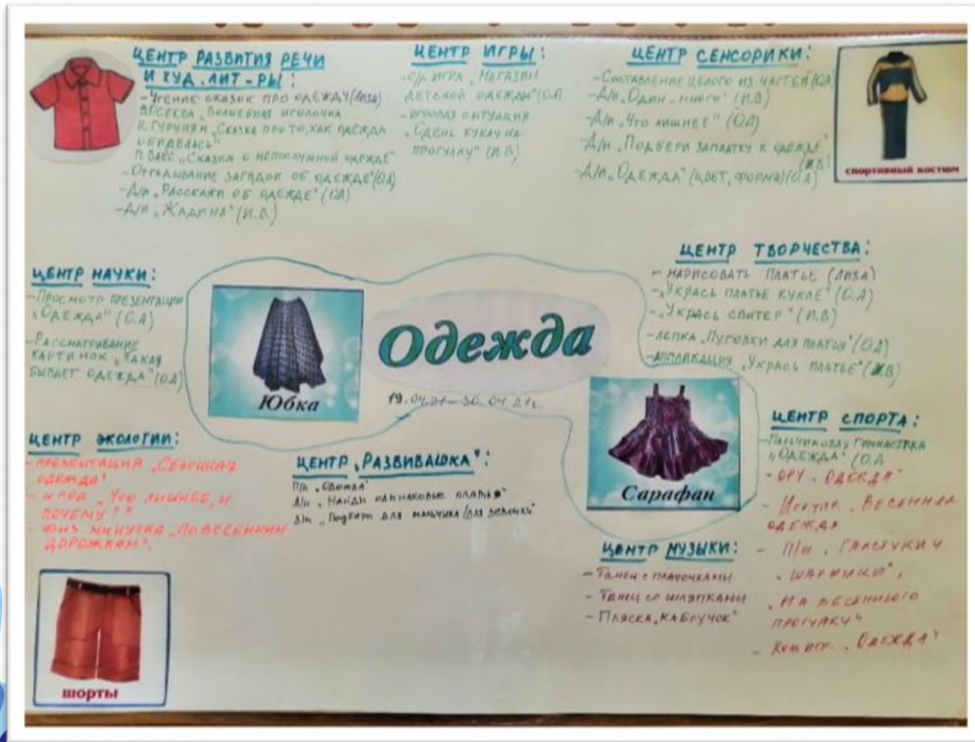 ЦЕНТР РАЗВИТИЯ РЕЧИ
И ХУД. ЛИТ-РЫ:
-Чтение сказок про одежду (Лиза)
"Волшебная иголочка
"Сказка про то, как одежда
обиделась"
"Сказка о непослушной одежде"
-Отгадывание загадок об одежде" (О.А)
-Д/и "Расскажи об одежде" (О.А)
-Д/и "Жадина" (И.В.)
ЦЕНТР ИГРЫ:
-С/р игра "Магазин
детской одежды" (О.А)
-Игровая ситуация
"Одень куклу на
прогулку" (И.В)
ЦЕНТР СЕНСОРИКИ:
-Составление целого из частей (О.А)
-Д/и "Один-много" (И.В)
-Д/и "Что лишнее" (О.А)
-Д/и "Подбери заплатку к одежде"
(И.В)
-Д/и "Одежда" (цвет, форма) (О.А)
спортивный костюм
ЦЕНТР НАУКИ:
-Просмотр презентации
"Одежда" (О.А)
-Рассматривание
картинок "Какая
бывает одежда" (О.А)
Юбка
Одежда
19.04.21-30.04.21г.
Сарафан
ЦЕНТР ТВОРЧЕСТВА:
- Нарисовать платье (Лиза)
-"Укрась платье кукле" (О.А)
-"Укрась свитер" (И.В)
-лепка "Пуговки для платья" (О.А)
-Аппликация "Укрась платье" (И.В)
ЦЕНТР ЭКОЛОГИИ:
- Презентация "Сезонная
одежда"
- Игра "Что лишнее, и
почему?"
- Физ минутка "По весенним
дорожкам".
ЦЕНТР "РАЗВИВАШКА":
П/и "Одежда"
Д/и "Найди одинаковые платья"
Д/и "Подбери для мальчика/для девочки"
ЦЕНТР СПОРТА:
-Пальчиковая гимнастика
"Одежда" (О.А
- ОРУ "Одежда"
"Весенняя
одежда
- П/и "Галстуки и
"шарфики",
"На весеннюю
прогулку"
- Ком игр. "Одежда"
ЦЕНТР МУЗЫКИ:
- Танец с платочками
- Танец со шляпками
- Пляска "Каблучок"
шорты